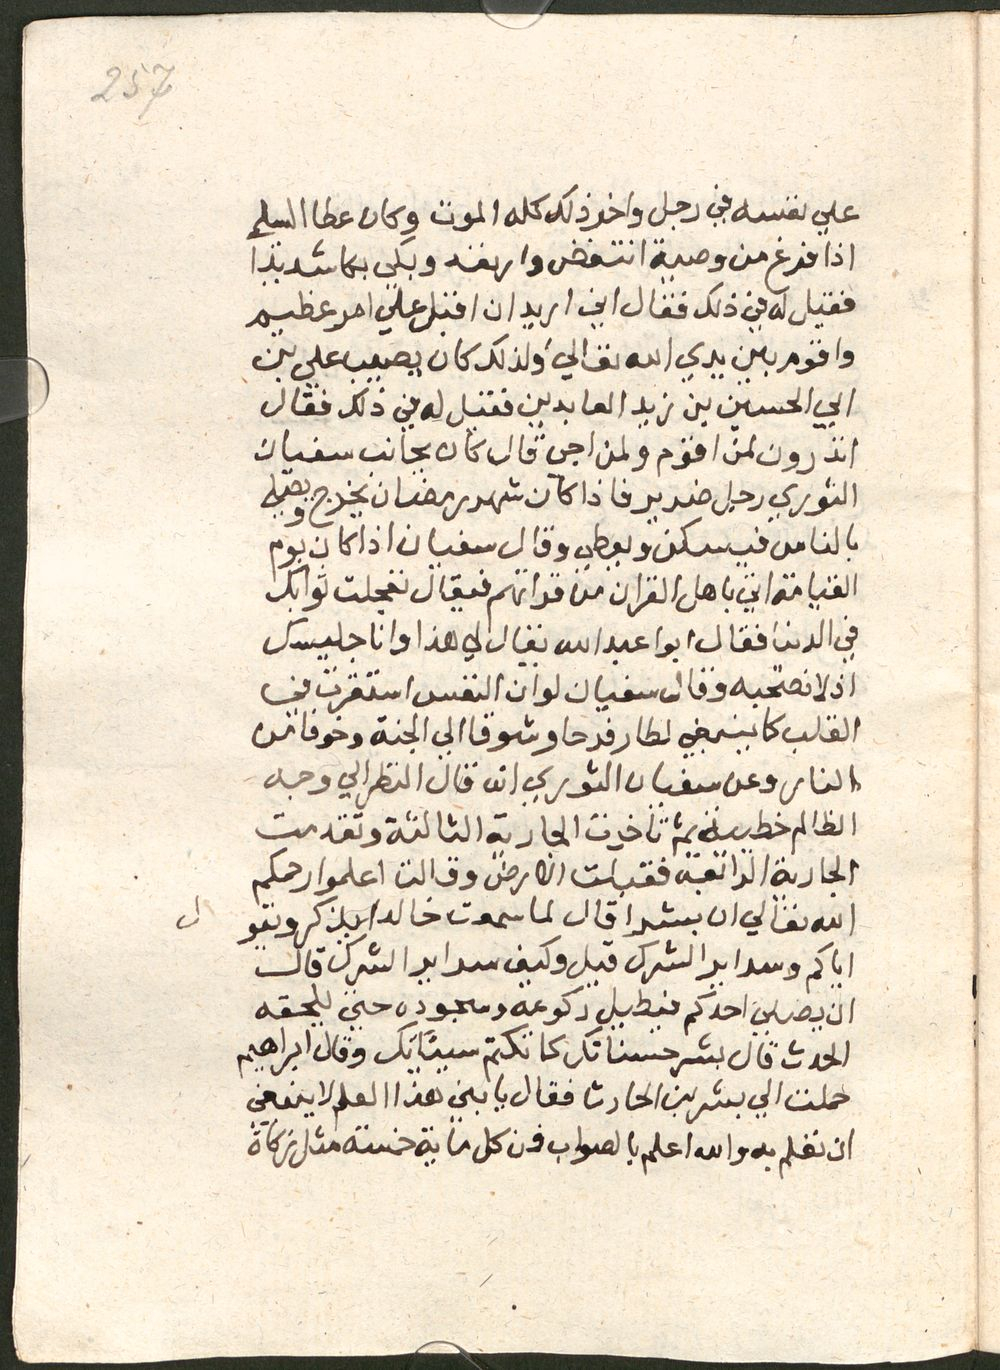 257
علي نفسه في رجل واخر ذلك كله الموت وكان عطا السلم
اذا فرغ من وصية انتفض وارتفد وبكي بكا شديدا
فقيل له في ذلك فقال اني اريد ان اقبل علي امر عظيم
واقوم بين يدي الله تعالي ولذلك كان يصيب علي بن
ابي الحسين بن زيد العابدين فقيل له في ذلك فقال
اتدرون لمن اقوم ولمن اجي قال كان بجانب سفيان
الثوري رجل ضرير فاذا كان شهر رمضان يخرج ويصلي
بالناس فيسكن ويعطي وقال سفيان اذا كان يوم
القيامة اتي باهل القران من قراتهم فيقال تعجلت ثوابك
في الدنيا فقال ابوا عبد الله يقال لي هذا وانا جليسك
اذ لا نصحبه وقال سفيان لو ان النفس استقرت في
القلب كما ينبغي لطار فرحا وشوقا الي الجنة وخوفا من
النار وعن سفيان الثوري انه قال النظر الي وجه
الظالم خطيية ثم تاخرت الجارية الثالثة وتقدمت
الجارية الرابعة فقبلت الارض وقالت اعلموا رحمكم
الله تعالي ان بشرا قال لما سمعت خالدا يذكر ويقو ل
اياكم وسداير الشرك قيل وكيف سداير الشرك قال
ان يصلي احدكم فيطيل ركوعه وسجوده حتي يلحقه
الحدث قال بشر حسناتك كما تكتم سيياتك وقال ابراهيم
حملت الي بشر بن الحارث فقال يا بني هذا العلم لا ينبغي
ان تعلم به والله اعلم بالصواب فن كل ماية خمسة مثل زكاة